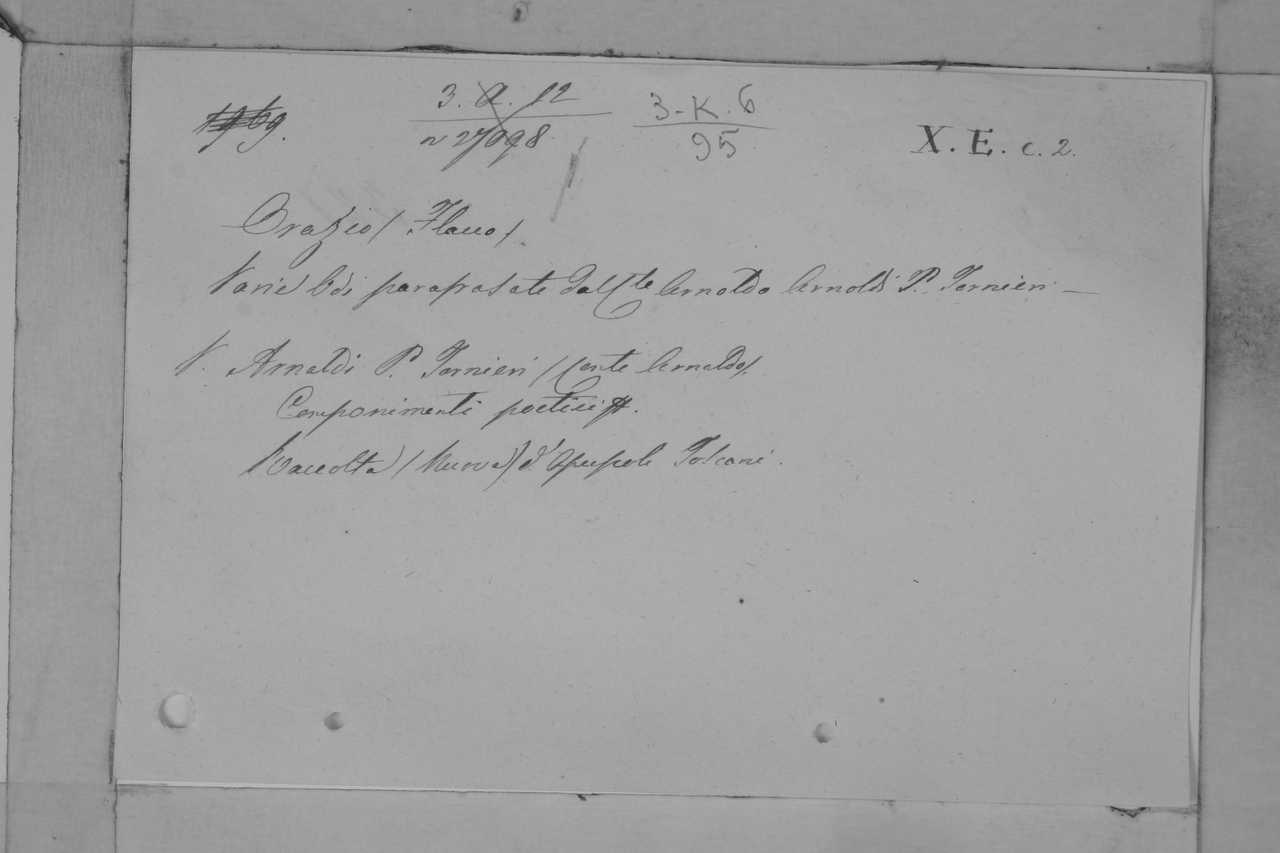 1969.
3. A. 12 3-K.6 X. E. c. 2.
n 27998 95
Orazio (Flacco).
Varie Odi parafrasate dal Cte Arnaldo Arnaldi P. Tornieri —
V. Arnaldi P. Tornieri (Conte Arnaldo).
Componimenti poetici
Raccolta (Nuova) d'Opuscoli Toscani.